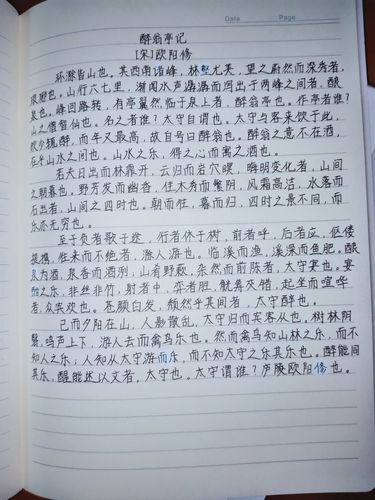 Date Page
醉翁亭记
[宋]欧阳修
环滁皆山也。其西南诸峰，林壑尤美，望之蔚然而深秀者，
琅琊也。山行六七里，渐闻水声潺潺而泻出于两峰之间者，酿
泉也。峰回路转，有亭翼然临于泉上者，醉翁亭也。作亭者谁？
山之僧智仙也。名之者谁？太守自谓也。太守与客来饮于此，
饮少辄醉，而年又最高，故自号曰醉翁也。醉翁之意不在酒，
在乎山水之间也。山水之乐，得之心而寓之酒也。
若夫日出而林霏开，云归而岩穴暝，晦明变化者，山间
之朝暮也。野芳发而幽香，佳木秀而繁阴，风霜高洁，水落而
石出者，山间之四时也。朝而往，暮而归，四时之景不同，而
乐亦无穷也。
至于负者歌于途，行者休于树，前者呼，后者应，伛偻
提携，往来而不绝者，滁人游也。临溪而渔，溪深而鱼肥。酿
泉为酒，泉香而酒洌；山肴野蔌，杂然而前陈者，太守宴也。宴
酣之乐，非丝非竹，射者中，弈者胜，觥筹交错，起坐而喧哗
者，众宾欢也。苍颜白发，颓然乎其间者，太守醉也。
已而夕阳在山，人影散乱，太守归而宾客从也。树林阴
翳，鸣声上下，游人去而禽鸟乐也。然而禽鸟知山林之乐，而不
知人之乐；人知从太守游而乐，而不知太守之乐其乐也。醉能同
其乐，醒能述以文者，太守也。太守谓谁？庐陵欧阳修也。